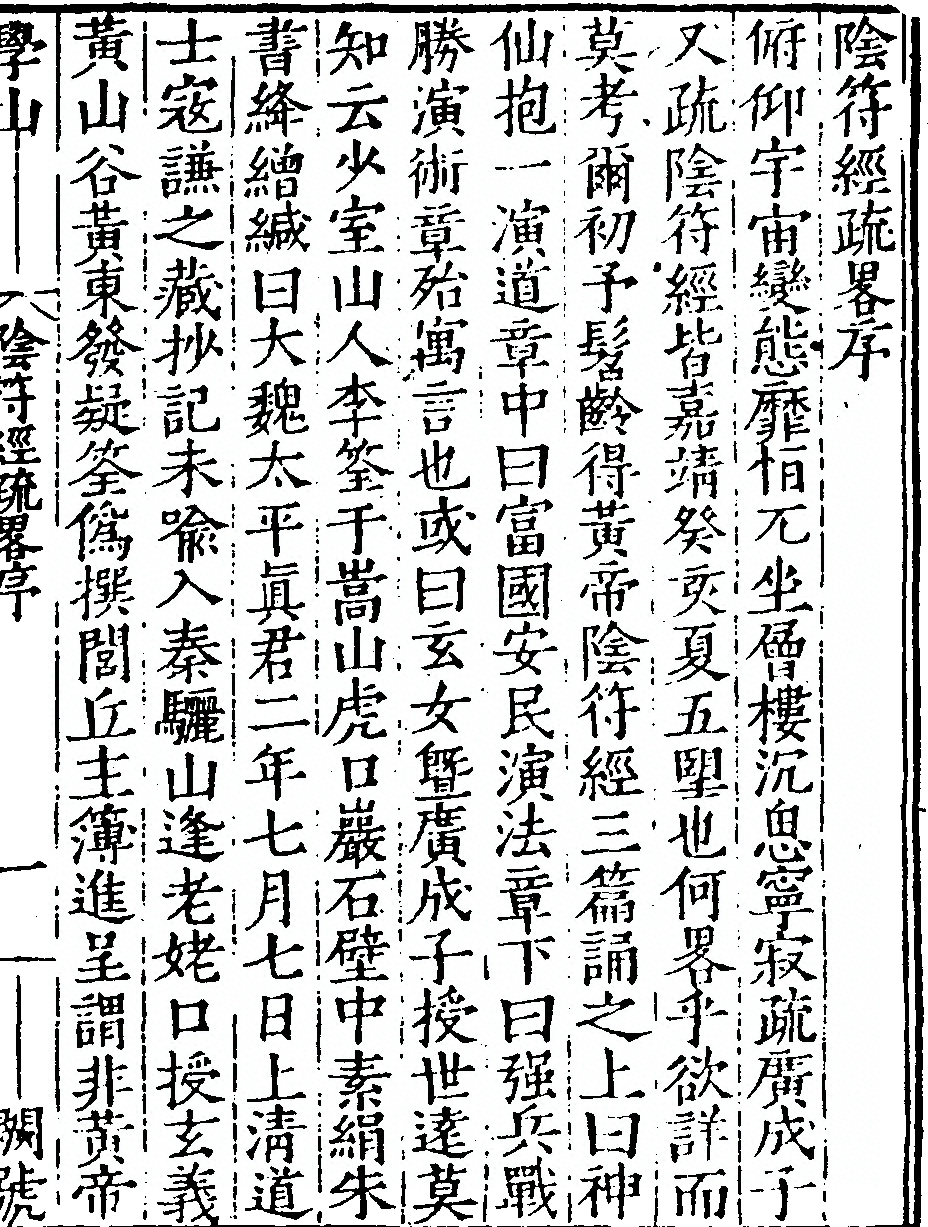 陰符經疏畧序
俯仰宇宙變態靡怕兀坐層樓沉思寧寂疏廣成子
又疏陰符經皆嘉靖癸亥夏五朢也何畧乎欲詳而
莫考爾初予髫齡得黃帝陰符經三篇誦之上曰神
仙抱一演道章中曰富國安民演法章下曰强兵戰
勝演術章殆寓言也或曰玄女暨廣成子授世逺莫
知云少室山人李筌于嵩山虎口巖石壁中素絹朱
書絳繒緘曰大魏太平眞君二年七月七日上淸道
士寇謙之藏抄記未喻入秦驪山逢老姥口授玄義
黃山谷黃東發疑筌僞撰閭丘主簿進呈謂非黃帝
學山
陰符經疏畧序
一
號